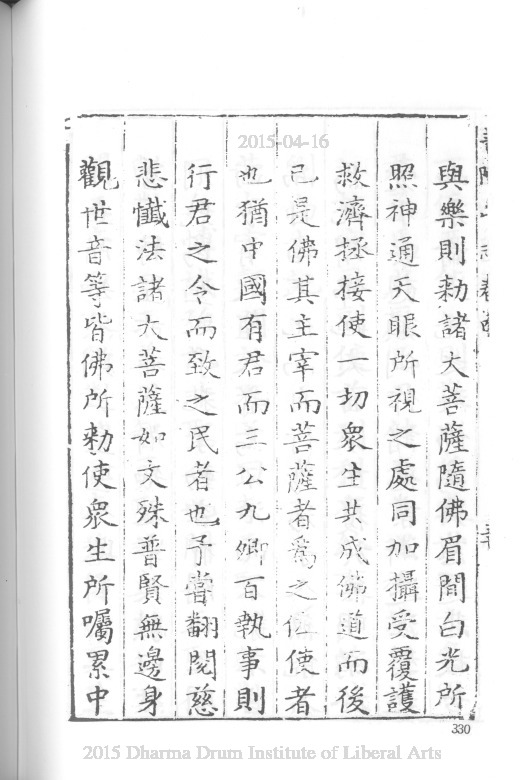 2015-04-16
與樂則勑諸大菩薩隨佛眉間白光所
照神通天眼所視之處同加攝受覆護
救濟拯接使一切衆生共成佛道而後
已是佛其主宰而菩薩者爲之伍使者
也猶中國有君而三公九卿百執事則
行君之令而致之民者也予嘗翻閱慈
悲懺法諸大菩薩如文殊普賢無邊身
觀世音等皆佛所勑使衆生所囑累中
330
2015 Dharma Drum Institute of Liberal Arts